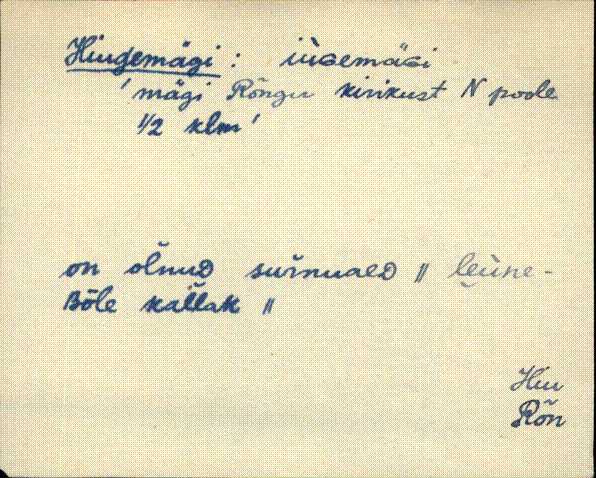 Hingemägi : iŋGemäGi
'mägi Rõngu kirikust N poole
1/2 klm'
on olnuD surnuaeD // leüne-
Bõle kallak //
Hin
Rõn